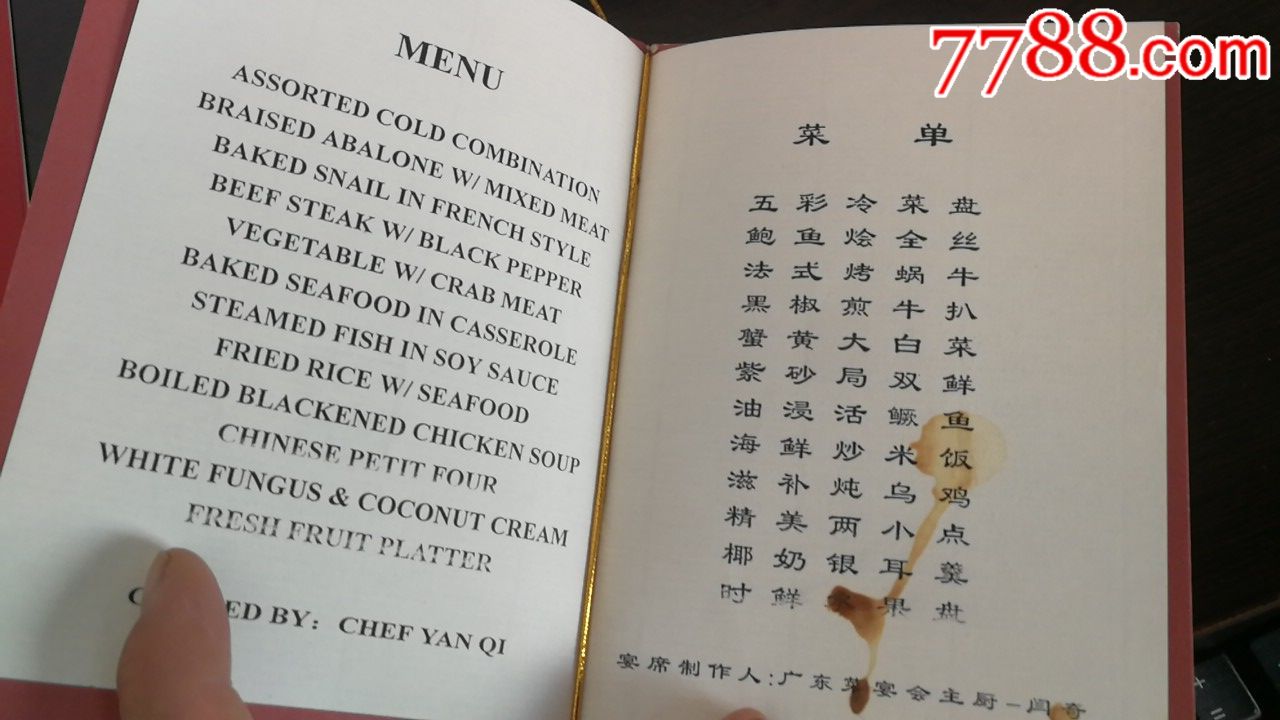 7788.com
MENU
ASSORTED COLD COMBINATION
BRAISED ABALONE W/ MIXED MEAT
BAKED SNAIL IN FRENCH STYLE
BEEF STEAK W/ BLACK PEPPER
VEGETABLE W/ CRAB MEAT
BAKED SEAFOOD IN CASSEROLE
STEAMED FISH IN SOY SAUCE
FRIED RICE W/ SEAFOOD
BOILED BLACKENED CHICKEN SOUP
CHINESE PETIT FOUR
WHITE FUNGUS & COCONUT CREAM
FRESH FRUIT PLATTER
BY: CHEF YAN QI
菜单
五彩冷菜盘
鲍鱼烩全丝
法式烤蜗牛
黑椒煎牛扒
蟹黄大白菜
紫砂局双鲜
油浸活鳜鱼
海鲜炒米饭
滋补炖乌鸡
精美两小点
椰奶银耳羹
时鲜水果盘
宴席制作人:广东菜宴会主厨-闫奇